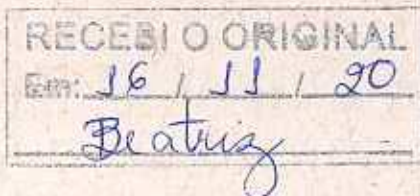 RECEBI O ORIGINAL
Em: 16 / 11 / 20
Beatriz